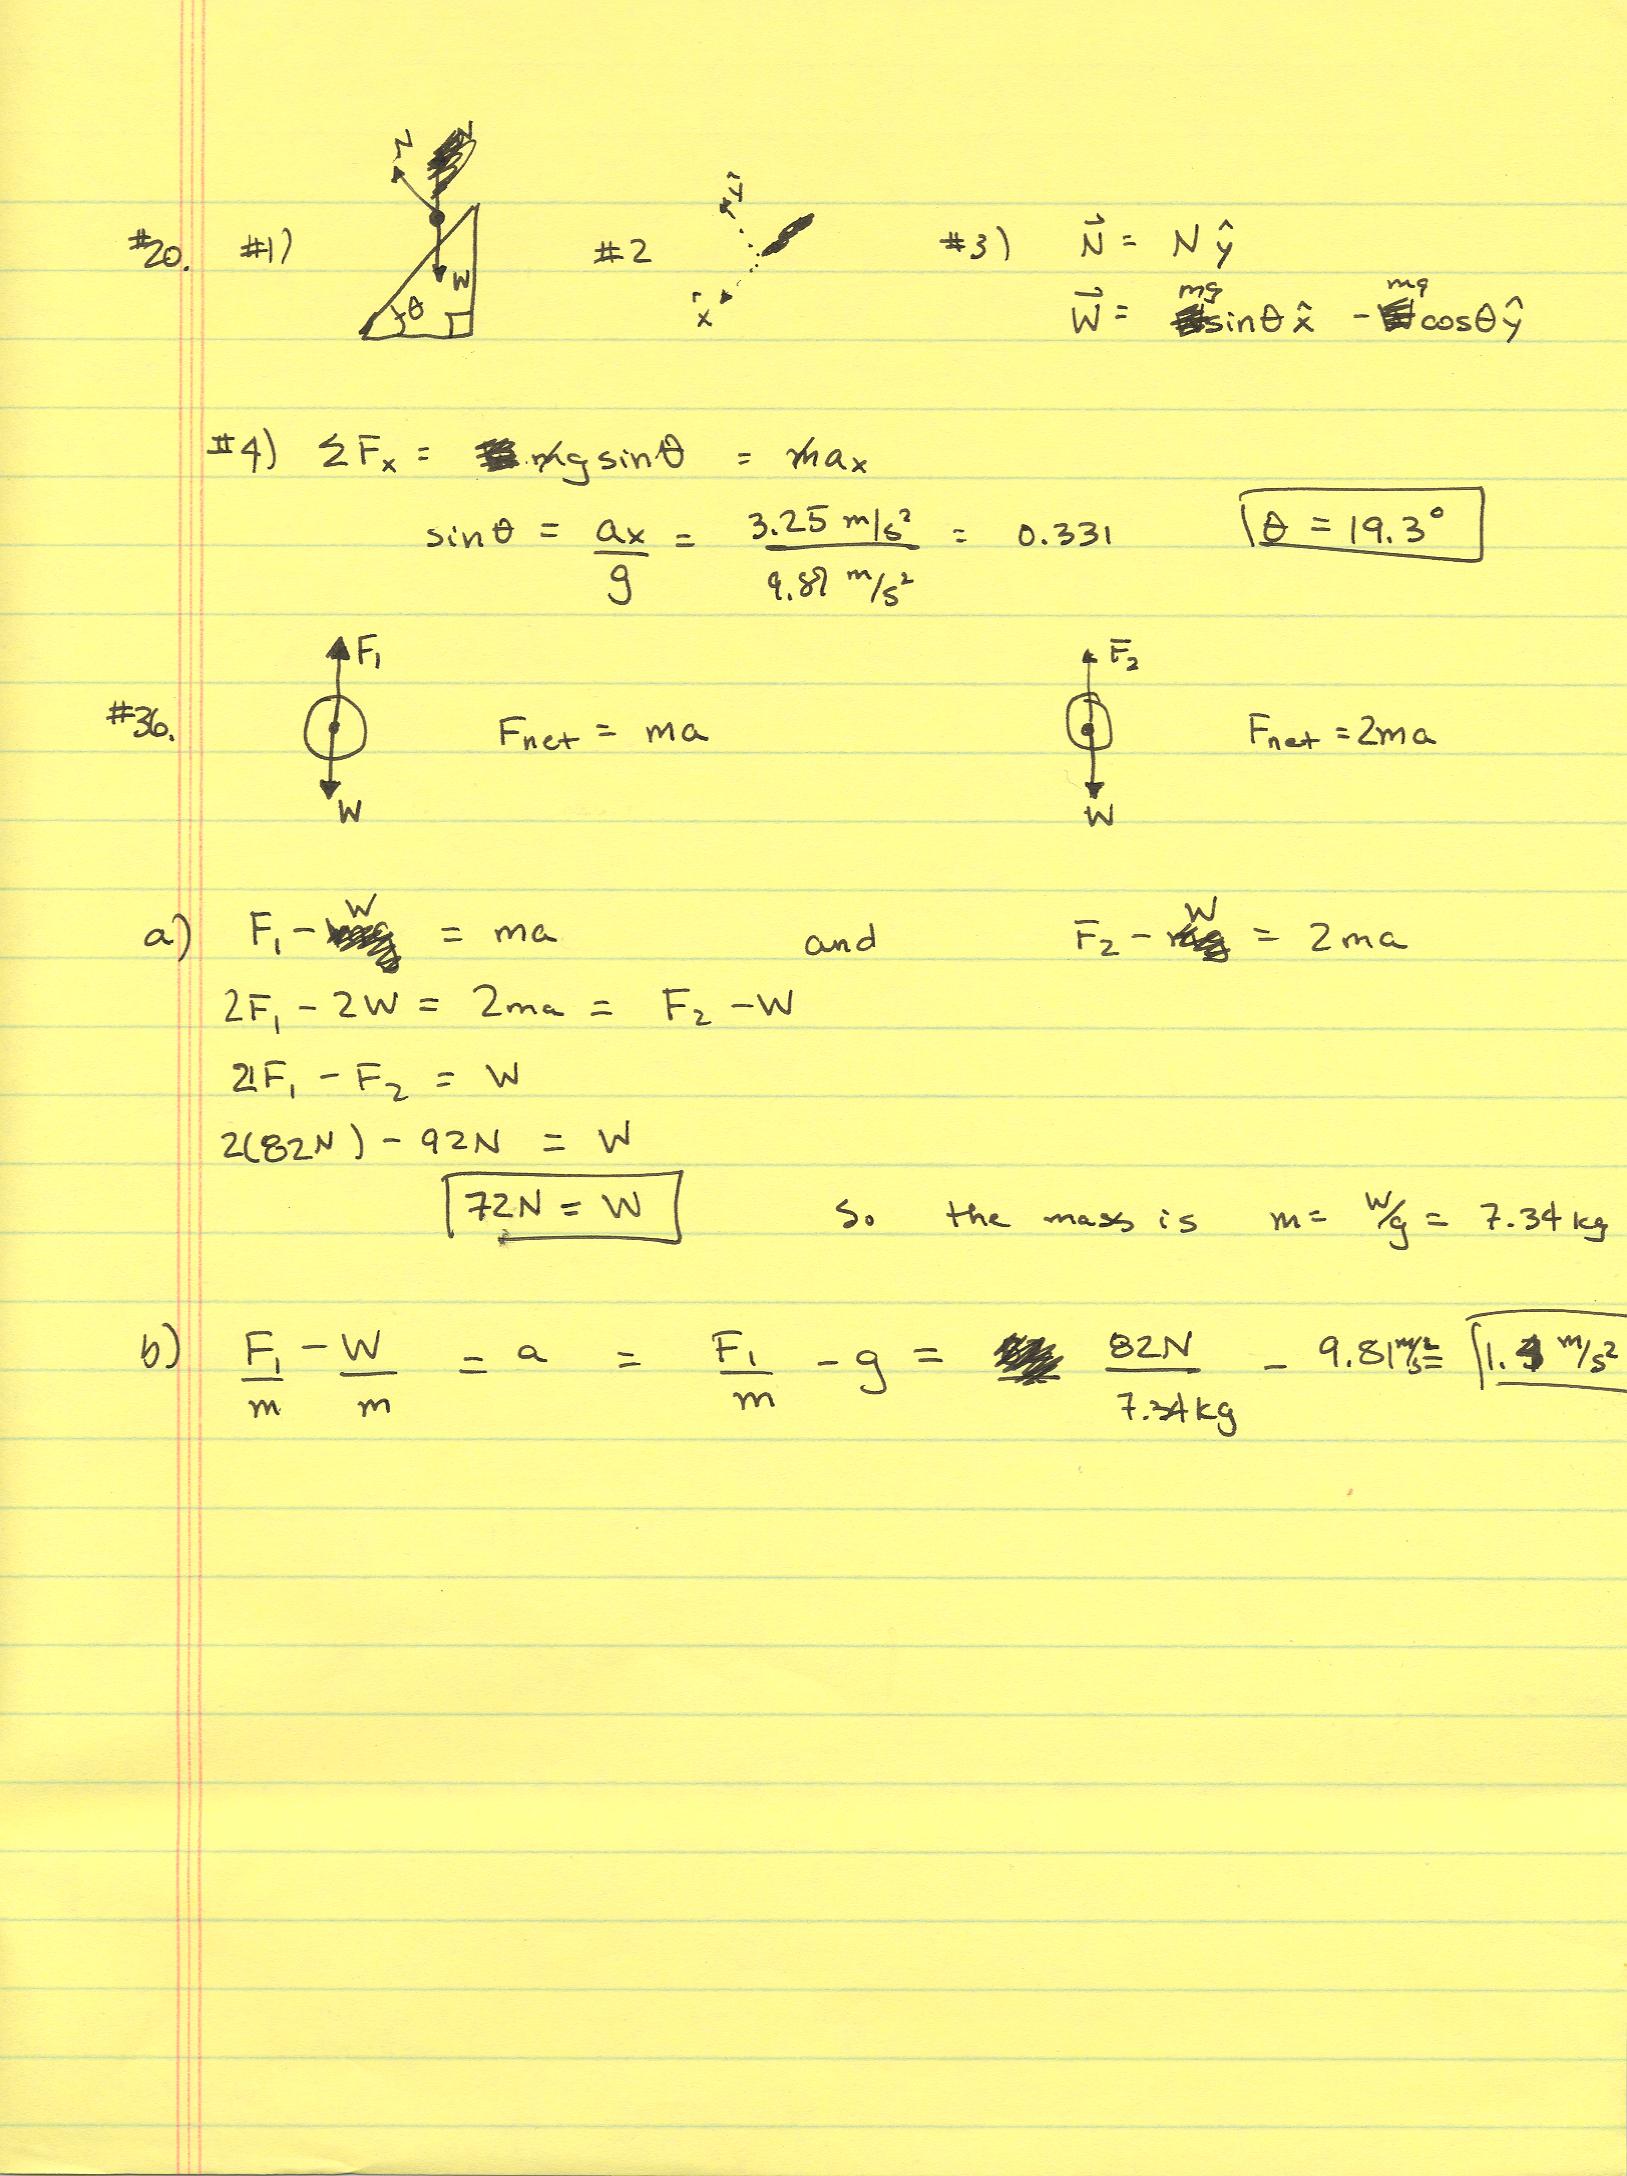 N
ŷ
#20. #1) #2 #3) N⃗ = N ŷ
W
θ
x̂
W⃗ = mg sinθ x̂ - mg cosθ ŷ
#4) ΣFx = mg sinθ = max
sinθ = ax/g = 3.25 m/s² / 9.81 m/s² = 0.331 θ = 19.3°
F₁ F₂
#36. Fnet = ma Fnet = 2ma
W W
a) F₁ - W = ma and F₂ - W = 2ma
2F₁ - 2W = 2ma = F₂ - W
2F₁ - F₂ = W
2(82N) - 92N = W
72N = W So the mass is m = W/g = 7.34 kg
b) F₁/m - W/m = a = F₁/m - g = 82N/7.34kg - 9.81 m/s² = m/s²